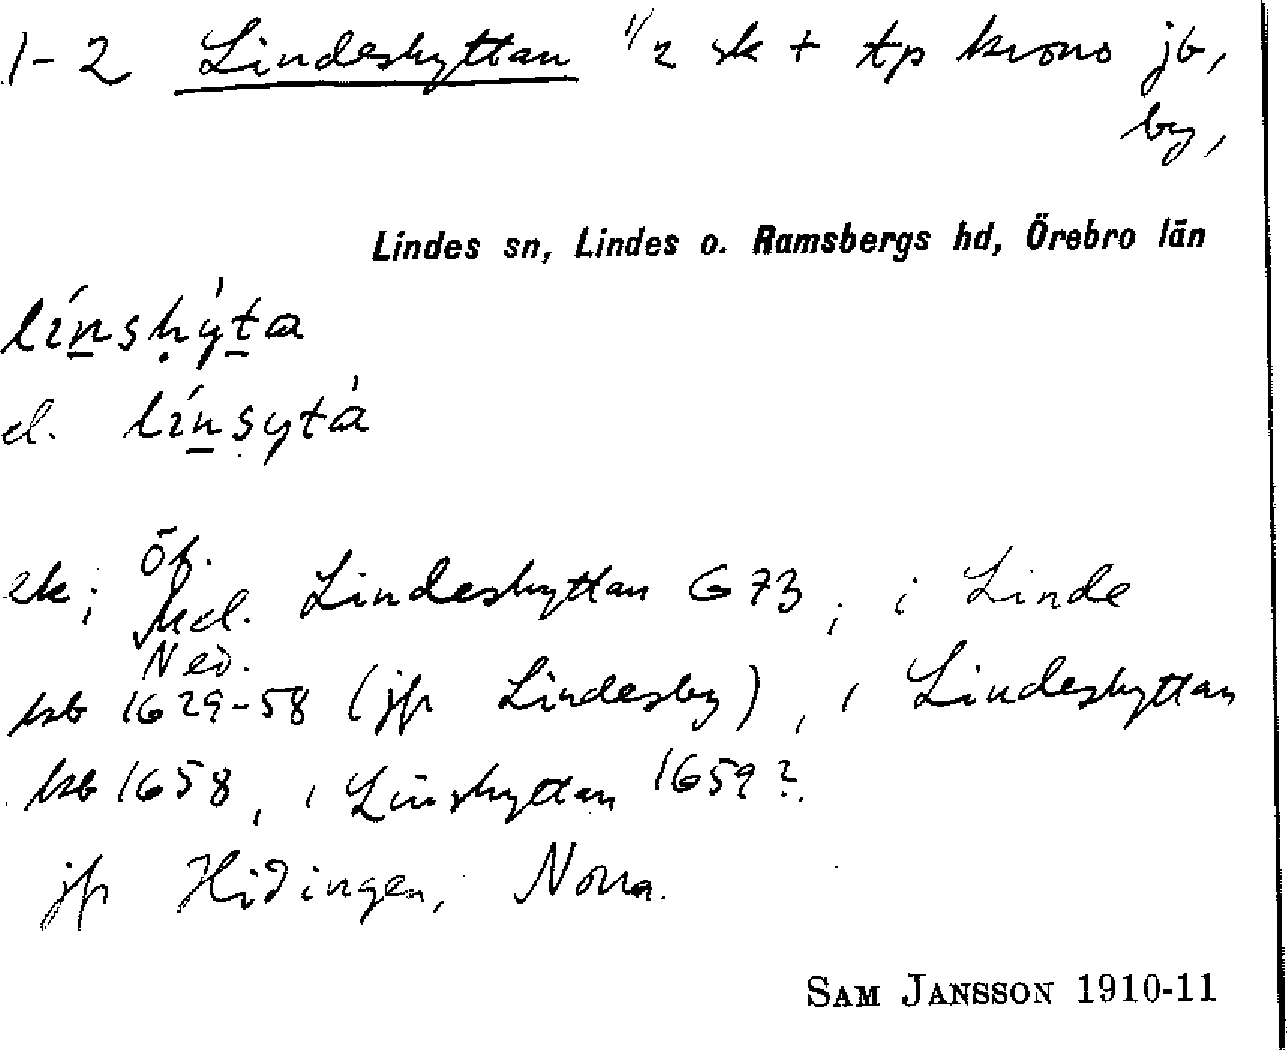 1-2 Lindeshyttan 1/2 sk + tp krono jb,
by,
Lindes sn, Lindes o. Ramsbergs hd, Örebro län
línshýta
el. línsytá
ek; Öf. Med. Ned. Lindeshyttan G73; i Linde
ksb 1629-58 (jfr Lindesby), i Lindeshyttan
ksb 1658, i Linshyttan 1659?
jfr Hidingen, Nora.
SAM JANSSON 1910-11